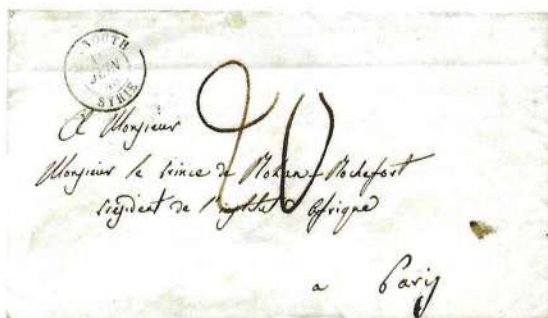 BEYROUTH
JUIN
SYRIE
20
A Monsieur
Monsieur le Prince de Rohan-Rochefort
président de l'institut d'Afrique
a Paris